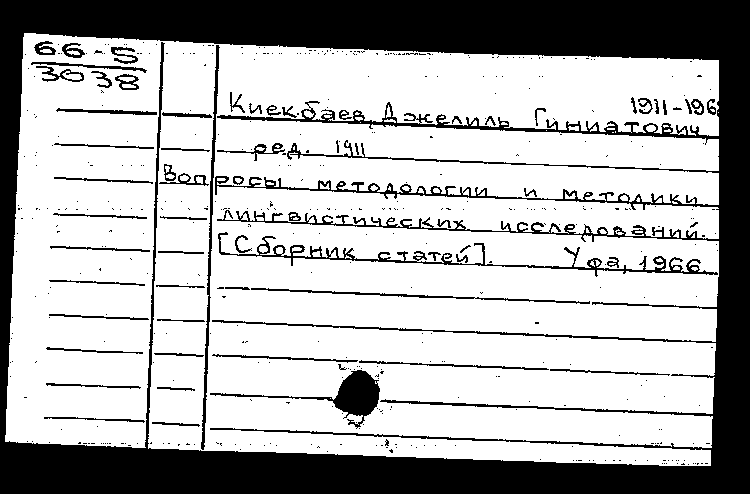 66-5
3038
1911-1968
Киекбаев, Джелиль Гиниатович,
ред. 1911
Вопросы методологии и методики
лингвистических исследований.
[Сборник статей]. Уфа, 1966.